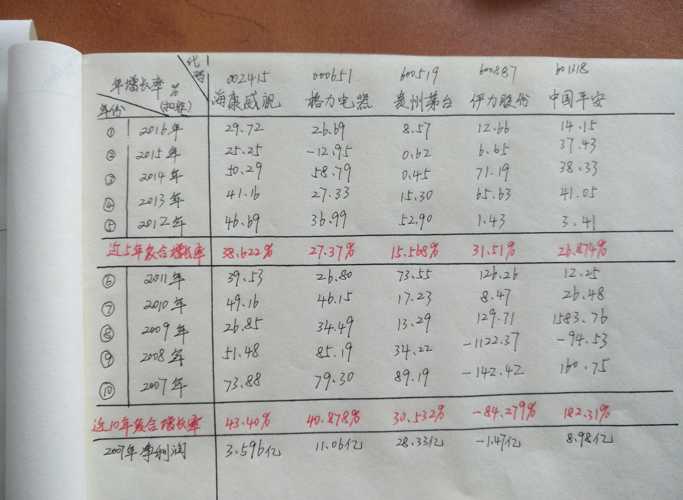 代码 002415 000651 600519 600887 601318
年增长率 名 海康威视 格力电器 贵州茅台 伊力股份 中国平安
年份 (扣非)
① 2016年 29.72 26.69 8.57 12.66 14.15
② 2015年 25.25 -12.95 0.62 6.65 37.43
③ 2014年 50.29 58.79 0.45 71.19 38.33
④ 2013年 41.16 27.33 15.30 65.63 41.05
⑤ 2012年 46.69 36.99 52.90 1.43 3.41
近5年复合增长率 38.622% 27.37% 15.568% 31.51% 26.874%
⑥ 2011年 39.53 26.80 73.55 126.26 12.25
⑦ 2010年 49.16 46.15 17.23 8.47 26.48
⑧ 2009年 26.85 34.49 13.29 129.71 1583.76
⑨ 2008年 51.48 85.19 34.22 -1122.37 -94.53
⑩ 2007年 73.88 79.30 89.19 -142.42 160.75
近10年复合增长率 43.40% 40.878% 30.532% -84.279% 182.31%
2007年净利润 3.596亿 11.06亿 28.33亿 -1.47亿 8.98亿